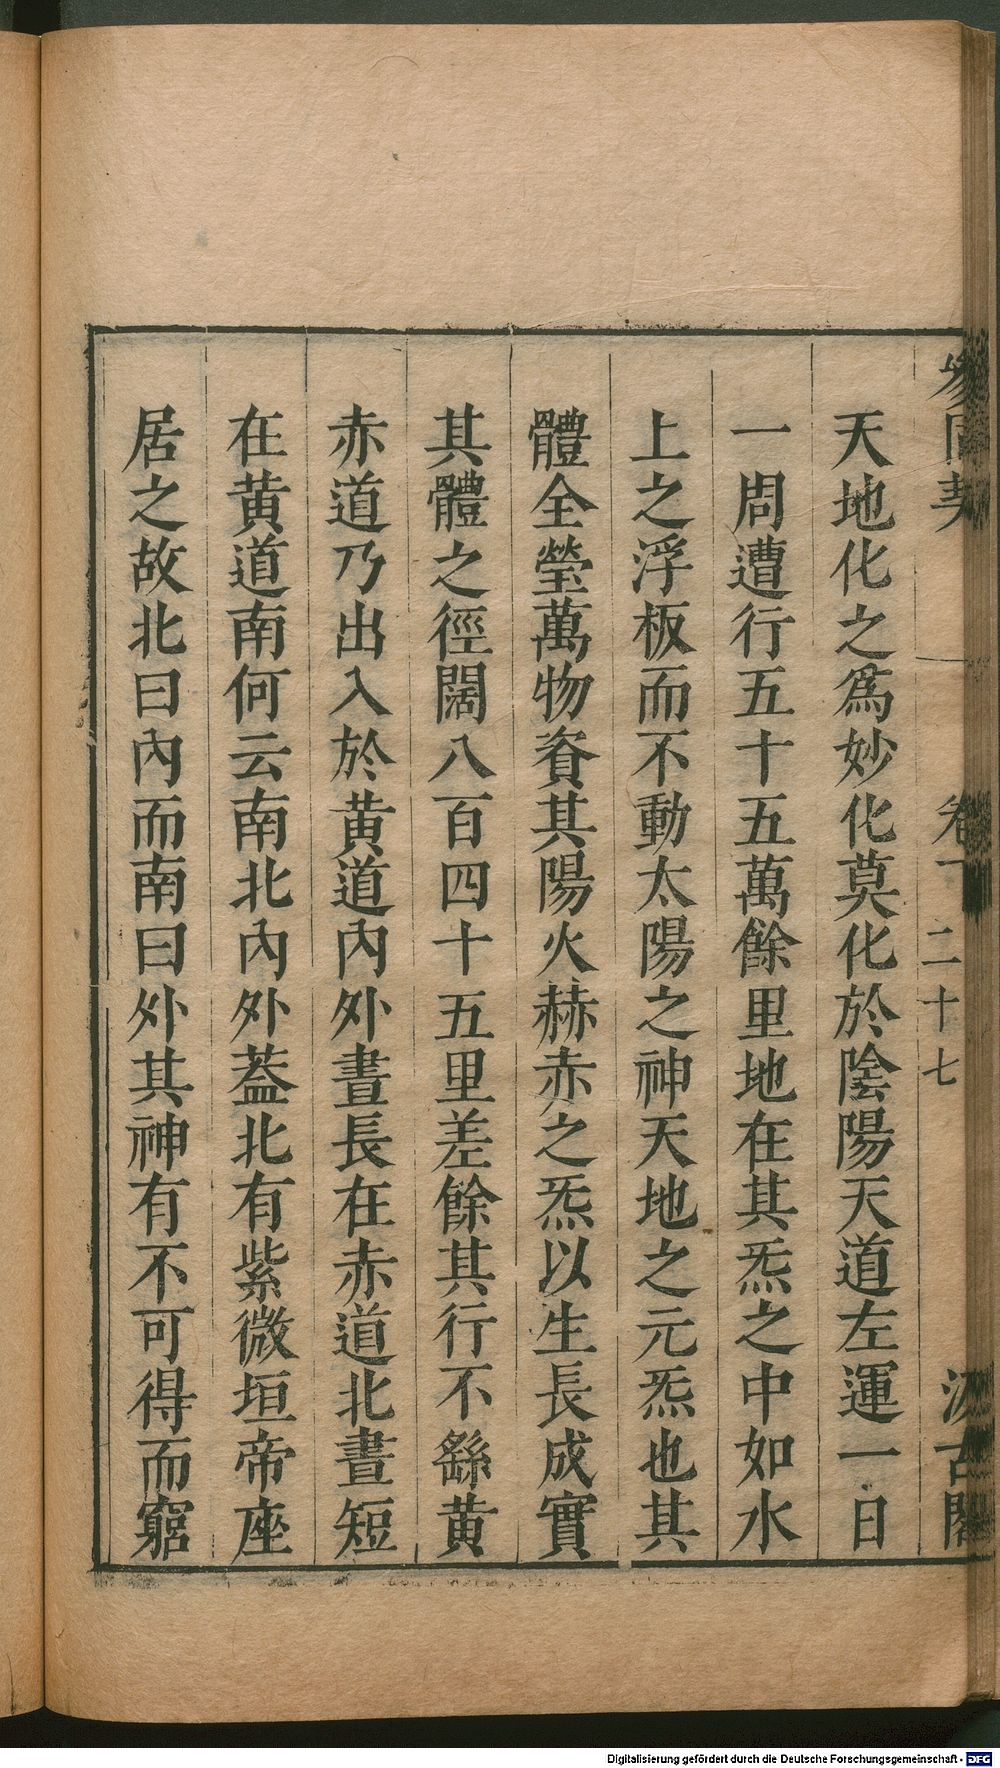 參同契 卷下 二十七 汲古閣
天地化之爲妙化莫化於陰陽天道左運一日
一周遭行五十五萬餘里地在其炁之中如水
上之浮板而不動太陽之神天地之元炁也其
體全瑩萬物資其陽火赫赤之炁以生長成實
其體之徑闊八百四十五里差餘其行不繇黄
赤道乃出入於黄道內外晝長在赤道北晝短
在黄道南何云南北內外葢北有紫微垣帝座
居之故北曰內而南曰外其神有不可得而窮
Digitalisierung gefördert durch die Deutsche Forschungsgemeinschaft - DFG